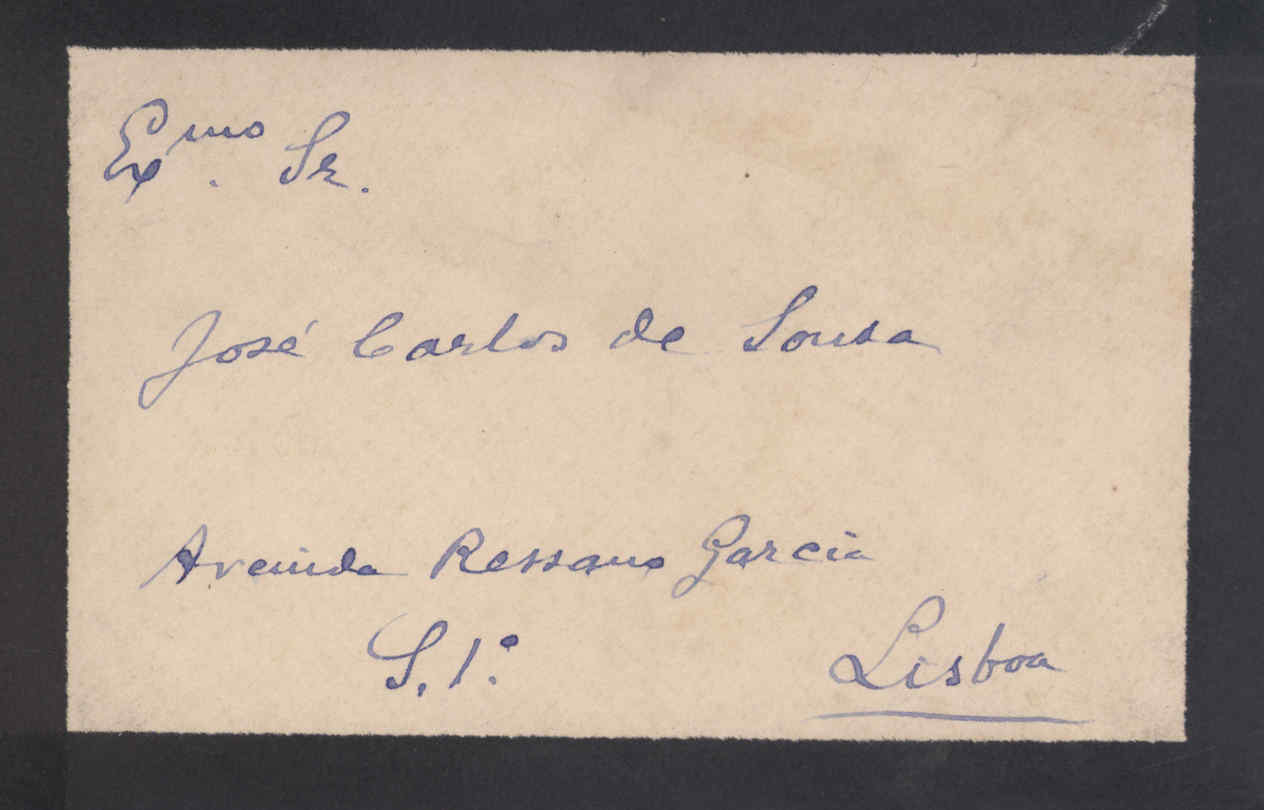 Exmo. Sr.
José Carlos de Sousa
Avenida Ressano Garcia
S. 1º.
Lisboa